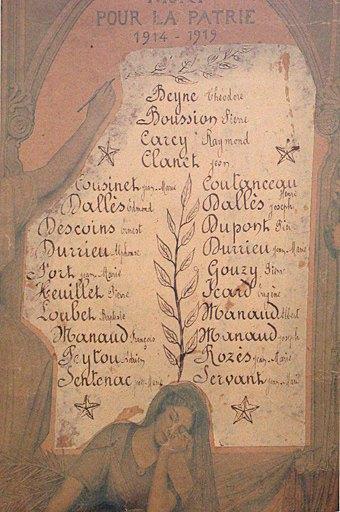 MORT
POUR LA PATRIE
1914 - 1919
Beyne Théodore
Boussion Pierre
Carcy Raymond
Clanet Jean
Cousinet Jean-Marie
Coutanceau Henri
Dallès Edmond
Dallès Joseph
Descoins Ernest
Dupont
Durrieu Alphonse
Durrieu Jean-Marie
Fort Jean-Marie
Gouzy Pierre
Heuillet Pierre
Icard Eugène
Loubet Baptiste
Manaud Albert
Manaud François
Manaud Joseph
Peytou Adrien
Rozès Jean-Marie
Sentenac Jean-Marie
Servant Jean-Paul